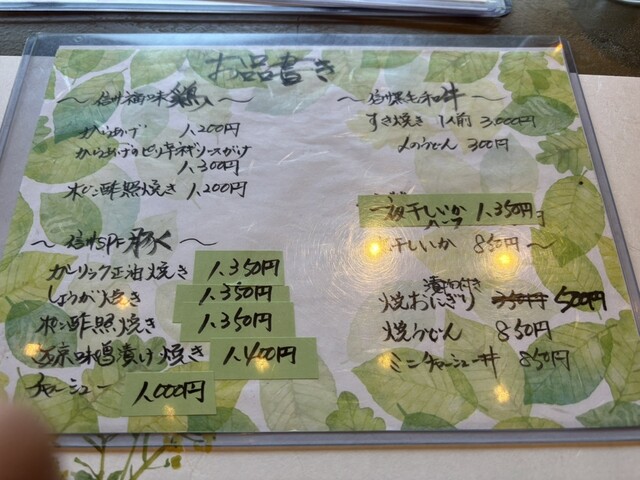 お品書き
～信州福味鶏～
からあげ 1,200円
からあげのピリ辛ネギソースがけ
1,300円
ポン酢照焼き 1,200円
～信州SPF豚～
ガーリック正油焼き 1,350円
しょうが焼き 1,350円
ポン酢照焼き 1,350円
味噌漬け焼き 1,400円
チャーシュー 1,000円
～信州黒毛和牛～
すき焼き 1人前 3,000円
〆のうどん 300円
一夜干しいか 1,350円
ハーフ
干しいか 850円～
漬物付き
焼おにぎり 350円 500円
焼うどん 850円
ミニチャーシュー丼 850円